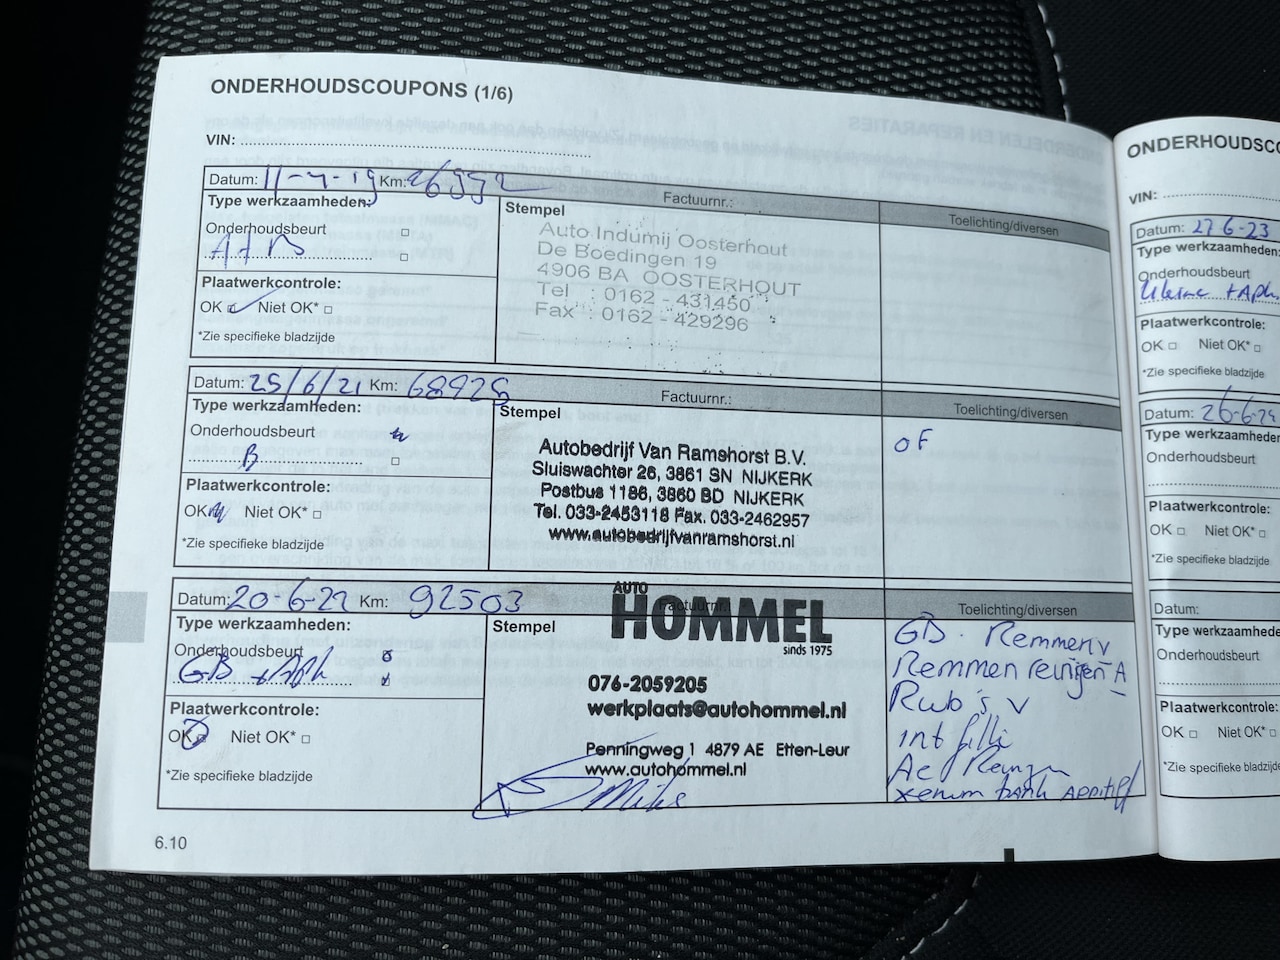 ONDERHOUDSCOUPONS (1/6)
VIN:
Datum: 11-4-19 Km: 26992 Factuurnr.:
Type werkzaamheden:
Onderhoudsbeurt
A+B
Plaatwerkcontrole:
OK Niet OK*
*Zie specifieke bladzijde
Stempel
Auto Indumij Oosterhout
De Boedingen 19
4906 BA OOSTERHOUT
Tel : 0162 - 431450
Fax : 0162 - 429296
Toelichting/diversen
Datum: 25/6/21 Km: 68925 Factuurnr.:
Type werkzaamheden:
Onderhoudsbeurt
B
Plaatwerkcontrole:
OK Niet OK*
*Zie specifieke bladzijde
Stempel
Autobedrijf Van Ramshorst B.V.
Sluiswachter 26, 3861 SN NIJKERK
Postbus 1186, 3860 BD NIJKERK
Tel. 033-2453118 Fax. 033-2462957
www.autobedrijfvanramshorst.nl
Toelichting/diversen
OF
Datum: 20-6-22 Km: 92503 Factuurnr.:
Type werkzaamheden:
Onderhoudsbeurt
GB + Aph
Plaatwerkcontrole:
OK Niet OK*
*Zie specifieke bladzijde
Stempel
AUTO
HOMMEL
sinds 1975
076-2059205
werkplaats@autohommel.nl
Penningweg 1 4879 AE Etten-Leur
www.autohommel.nl
Toelichting/diversen
GB. Remmen v
Remmen reinigen A
Rwb's v
int filli
Ae
xenum tank Additif
6.10
ONDERHOUDSCO
VIN:
Datum: 27 6-23
Type werkzaamheden:
Onderhoudsbeurt
Kleine + Aph
Plaatwerkcontrole:
OK Niet OK*
*Zie specifieke bladzijde
Datum: 26-6-24
Type werkzaamheden
Onderhoudsbeurt
Plaatwerkcontrole:
OK Niet OK*
*Zie specifieke bladzijde
Datum:
Type werkzaamhede
Onderhoudsbeurt
Plaatwerkcontrole:
OK Niet OK*
*Zie specifieke bladzijd